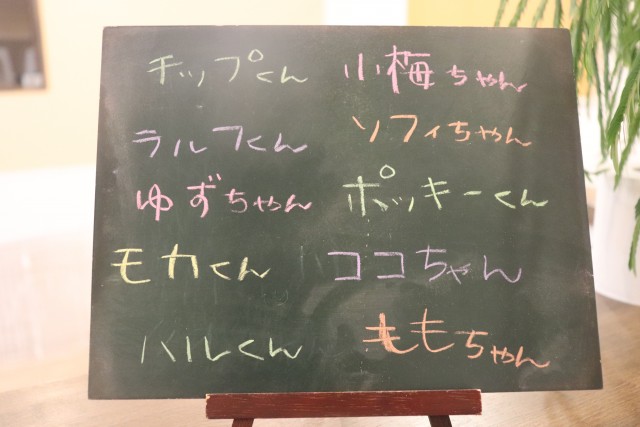 チップくん
小梅ちゃん
ラルフくん
ソフィちゃん
ゆずちゃん
ポッキーくん
モカくん
ココちゃん
ハルくん
ももちゃん